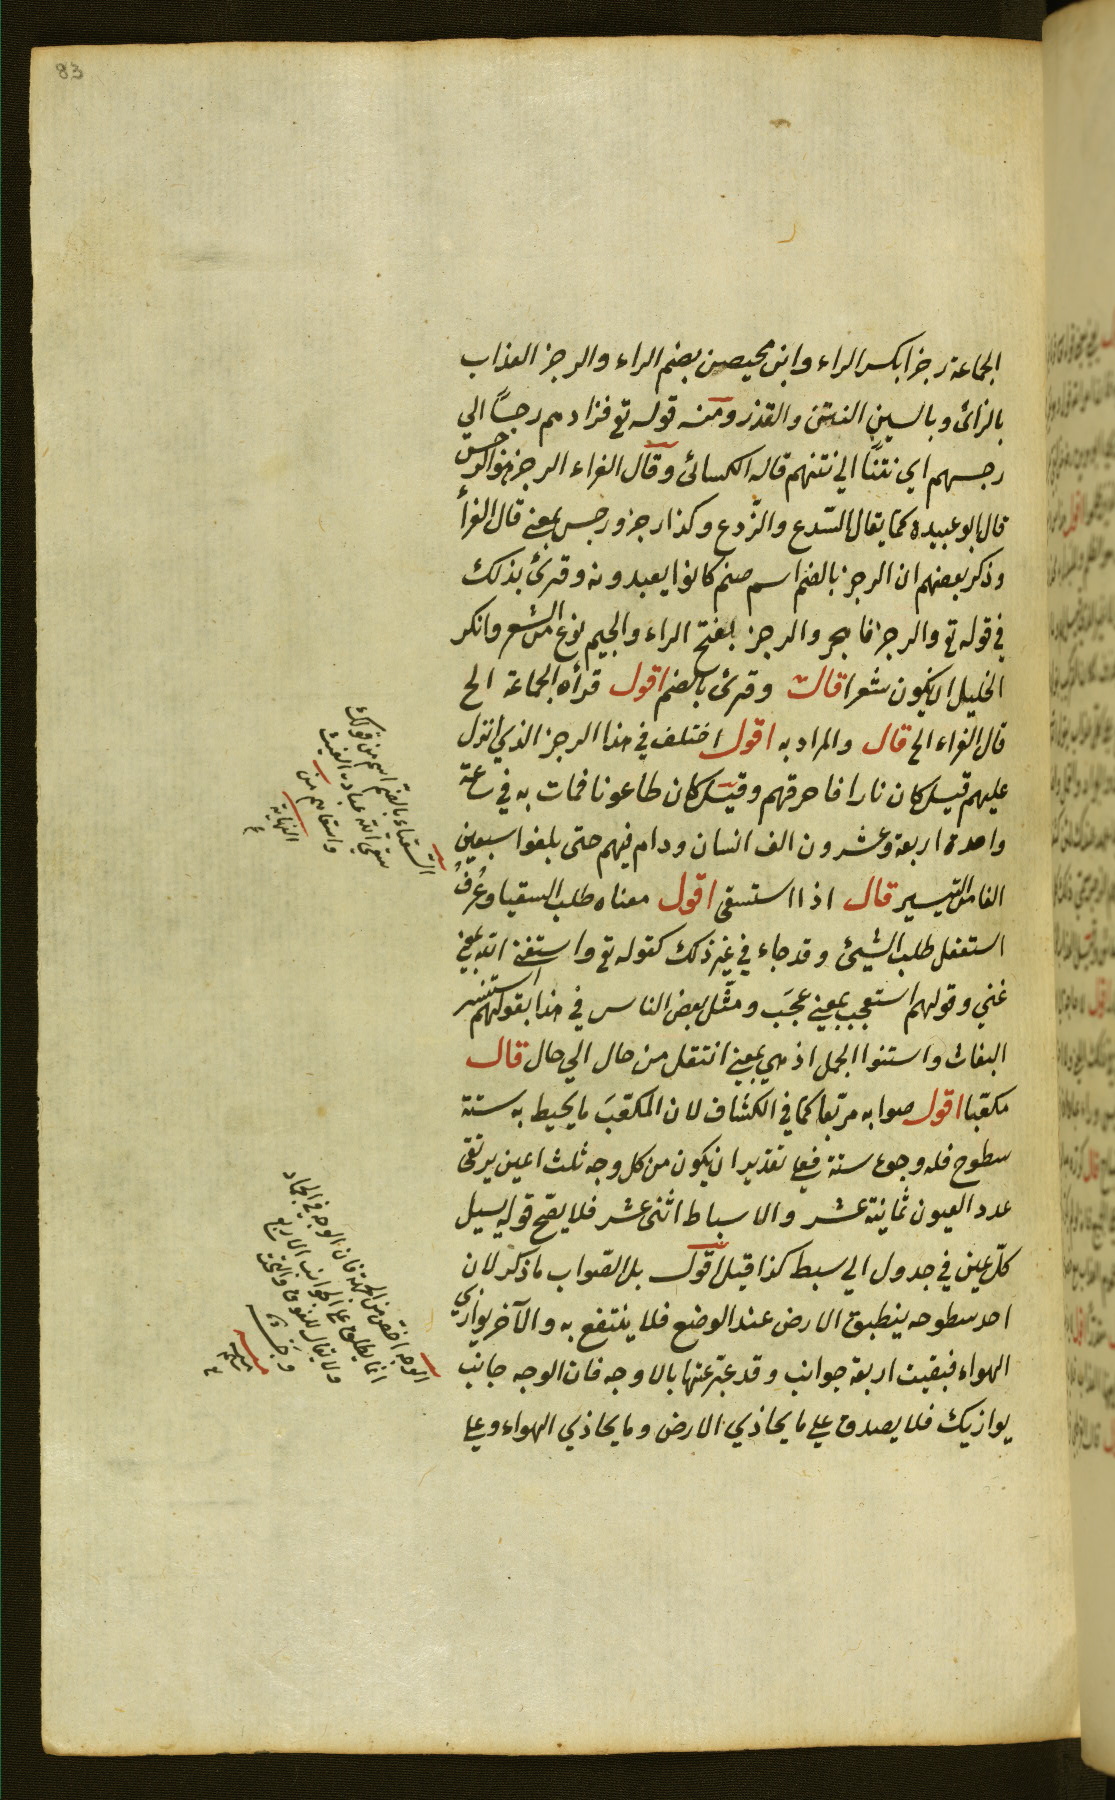 83
الجماعة رجزا بكسر الراء وابن محيصن بضم الراء والرجز العذاب
بالزائ وبالسين النتن والقذر ومنه قوله تع فزادهم رجسًا الي
رجسهم اي نتنًا الي نتنهم قاله الكسائي وقال الفراء الرجز هو الرجس
قال ابو عبيدة كما يقال السّدع والزّدع وكذا رجز ورجس بمعني قال الفرأ
وذكر بعضهم ان الرجز بالضم اسم صنم كانوا يعبدونه وقرئ بذلك
في قوله تع والرجز فاهجر والرجز بفتح الراء والجيم نوع من الشعر وانكر
الخليل ان يكون شعرا قال وقرئ بالضم اقول قرأه الجماعة الخ
قال الفراء الخ قال والمراد به اقول اختلف في هذا الرجز الذي انزل
عليهم قيل كان نارا فاحرقهم وقيل كان طاعونا فمات به في ساعة
واحدة اربعة وعشرون الف انسان ودام فيهم حتى بلغوا سبعين
الفا من التيسير قال اذا استسقى اقول معناه طلب السقيا وعُرفُ
استفعل طلب الشيئ وقد جاء في غير ذلك كقوله تع واستغنى الله بمعني
غني وقولهم استعجب بمعني عجَب ومثّل بعض الناس في هذا بقولهم استنسر
البغاث واستنوا الجمل اذ هي بمعني انتقل من حال الي حال قال
مكعّبا اقول صوابه مربّعا كما في الكشاف لان المكعّبَ ما يحيط به ستة
سطوح فله وجوه ستة فعلى تقدير ان يكون من كل وجه ثلث اعين يرتقى
عدد العيون ثمانية عشر والاسباط اثنى عشر فلا يصّح قوله يسيل
كلّ عين في جدول الي سبط كذا قيل اقول بل الصّواب ما ذكر لان
احد سطوحه ينطبق الارض عند الوضع فلا ينتفع به والآخر يوازي
الهواء فبقيت اربعة جوانب وقد عبّر عنها بالاوجه فان الوجه جانب
يوازيك فلا يصدق علي ما يحاذي الارض وما يحاذي الهواء وعلي
السقيا بالضم اسم من قولك
سقى الله عباده الغيث
واسقاهم من
النهاية
الوجه اخصّ من الجهة فان الوجه في الجماد
انما يطلق على الجوانب الاربع
ولا يقال للفوق والتحت
منه